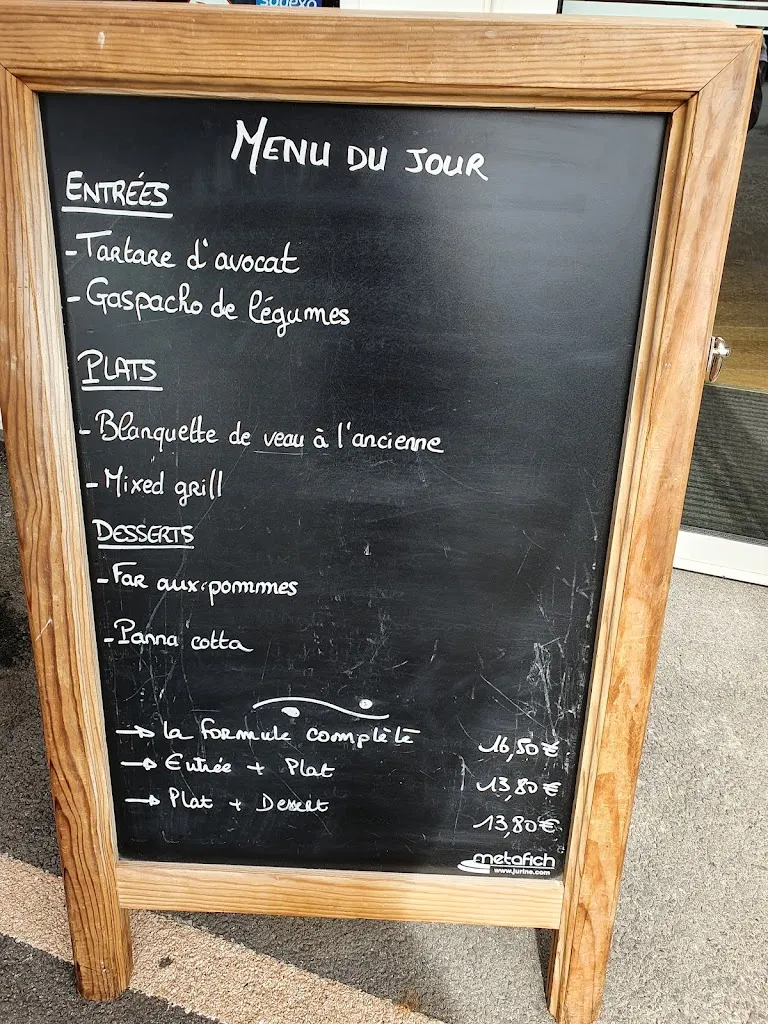 sodexo
MENU DU JOUR
ENTRÉES
-Tartare d'avocat
-Gaspacho de légumes
PLATS
-Blanquette de veau à l'ancienne
-Mixed grill
DESSERTS
-Far aux pommes
-Panna cotta
→ la formule complète 16,50€
→ Entrée + Plat 13,80€
→ Plat + Dessert 13,80€
metafich
www.jurine.com